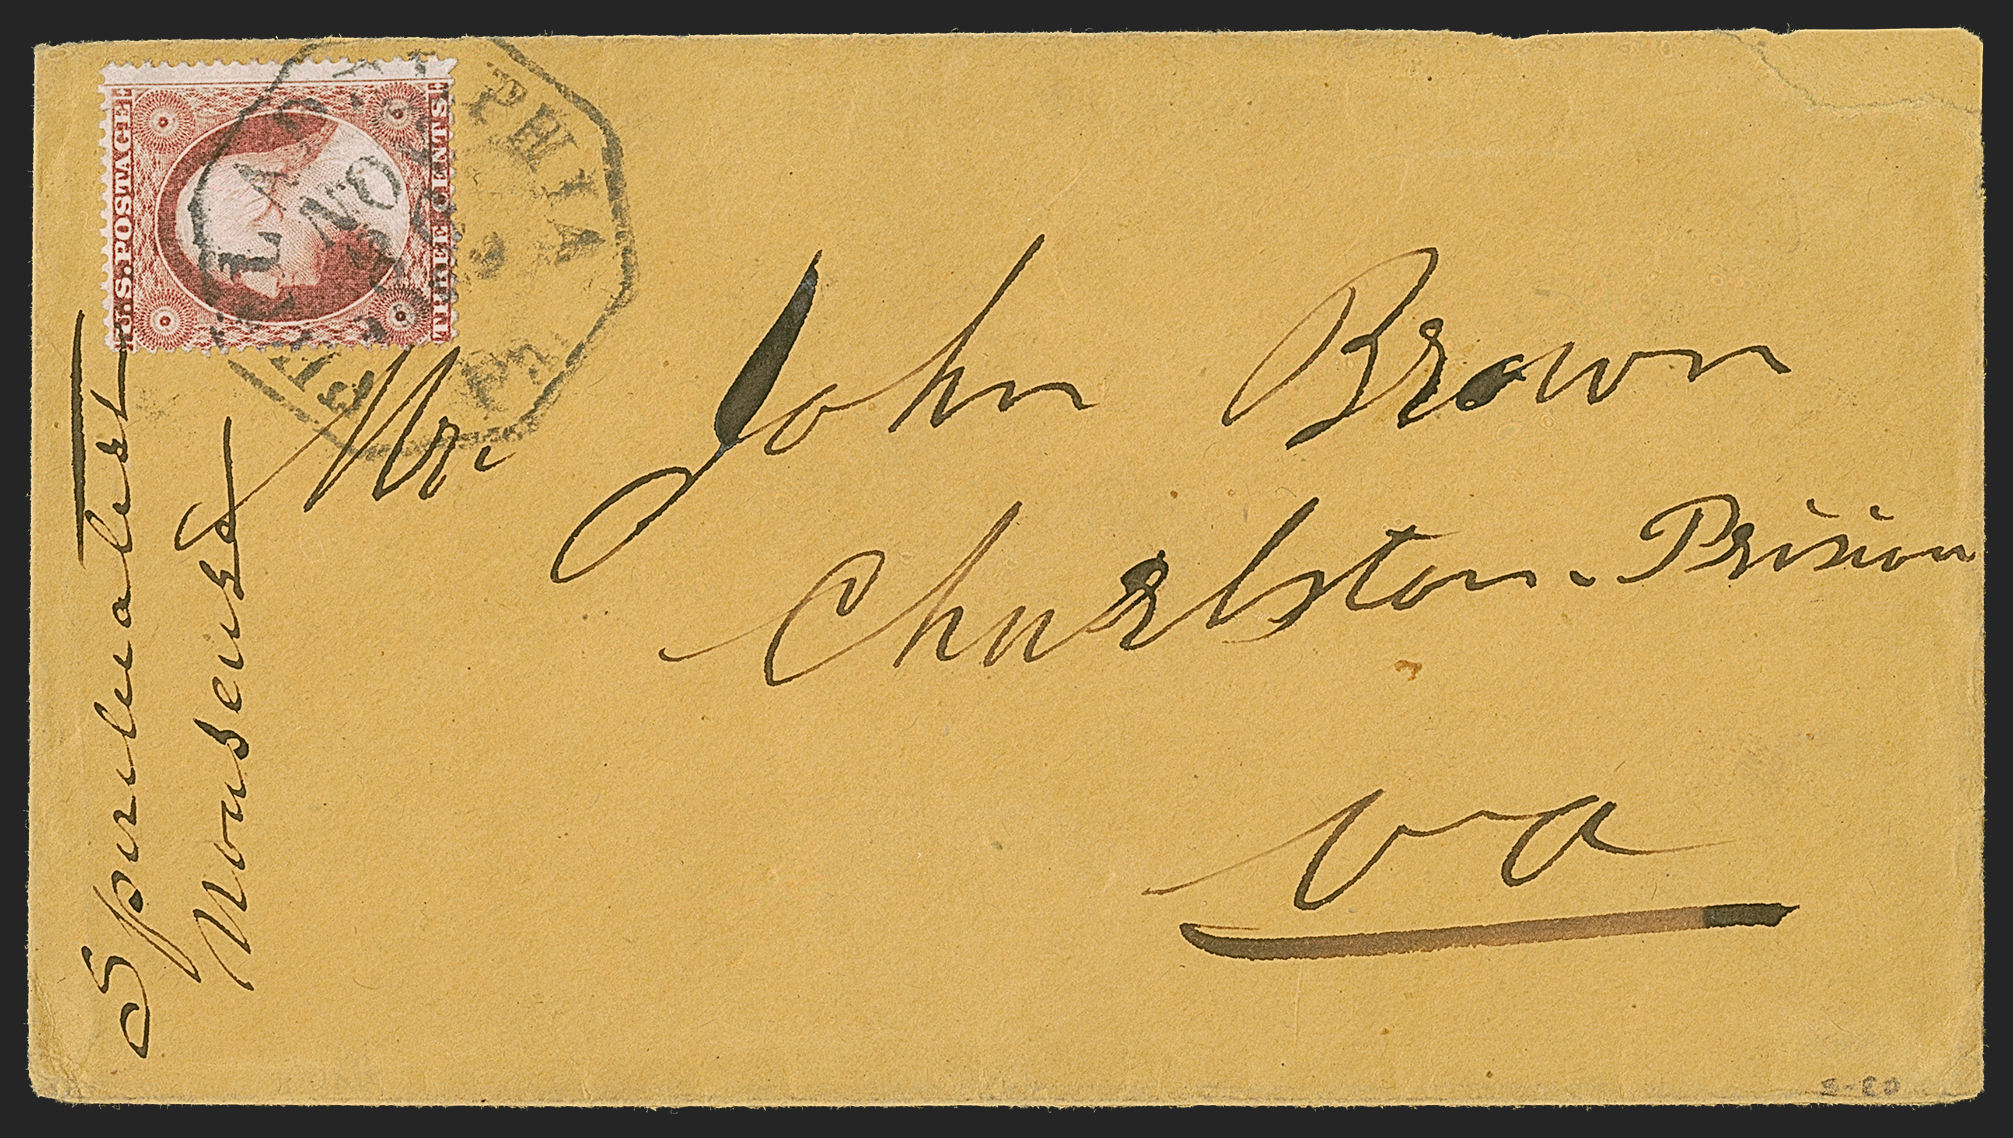 U.S. POSTAGE.
THREE CENTS.
PHILADELPHIA
NOV
Pa.
Mr. John Brown
Charlston. Prision
Va
Spiritualist